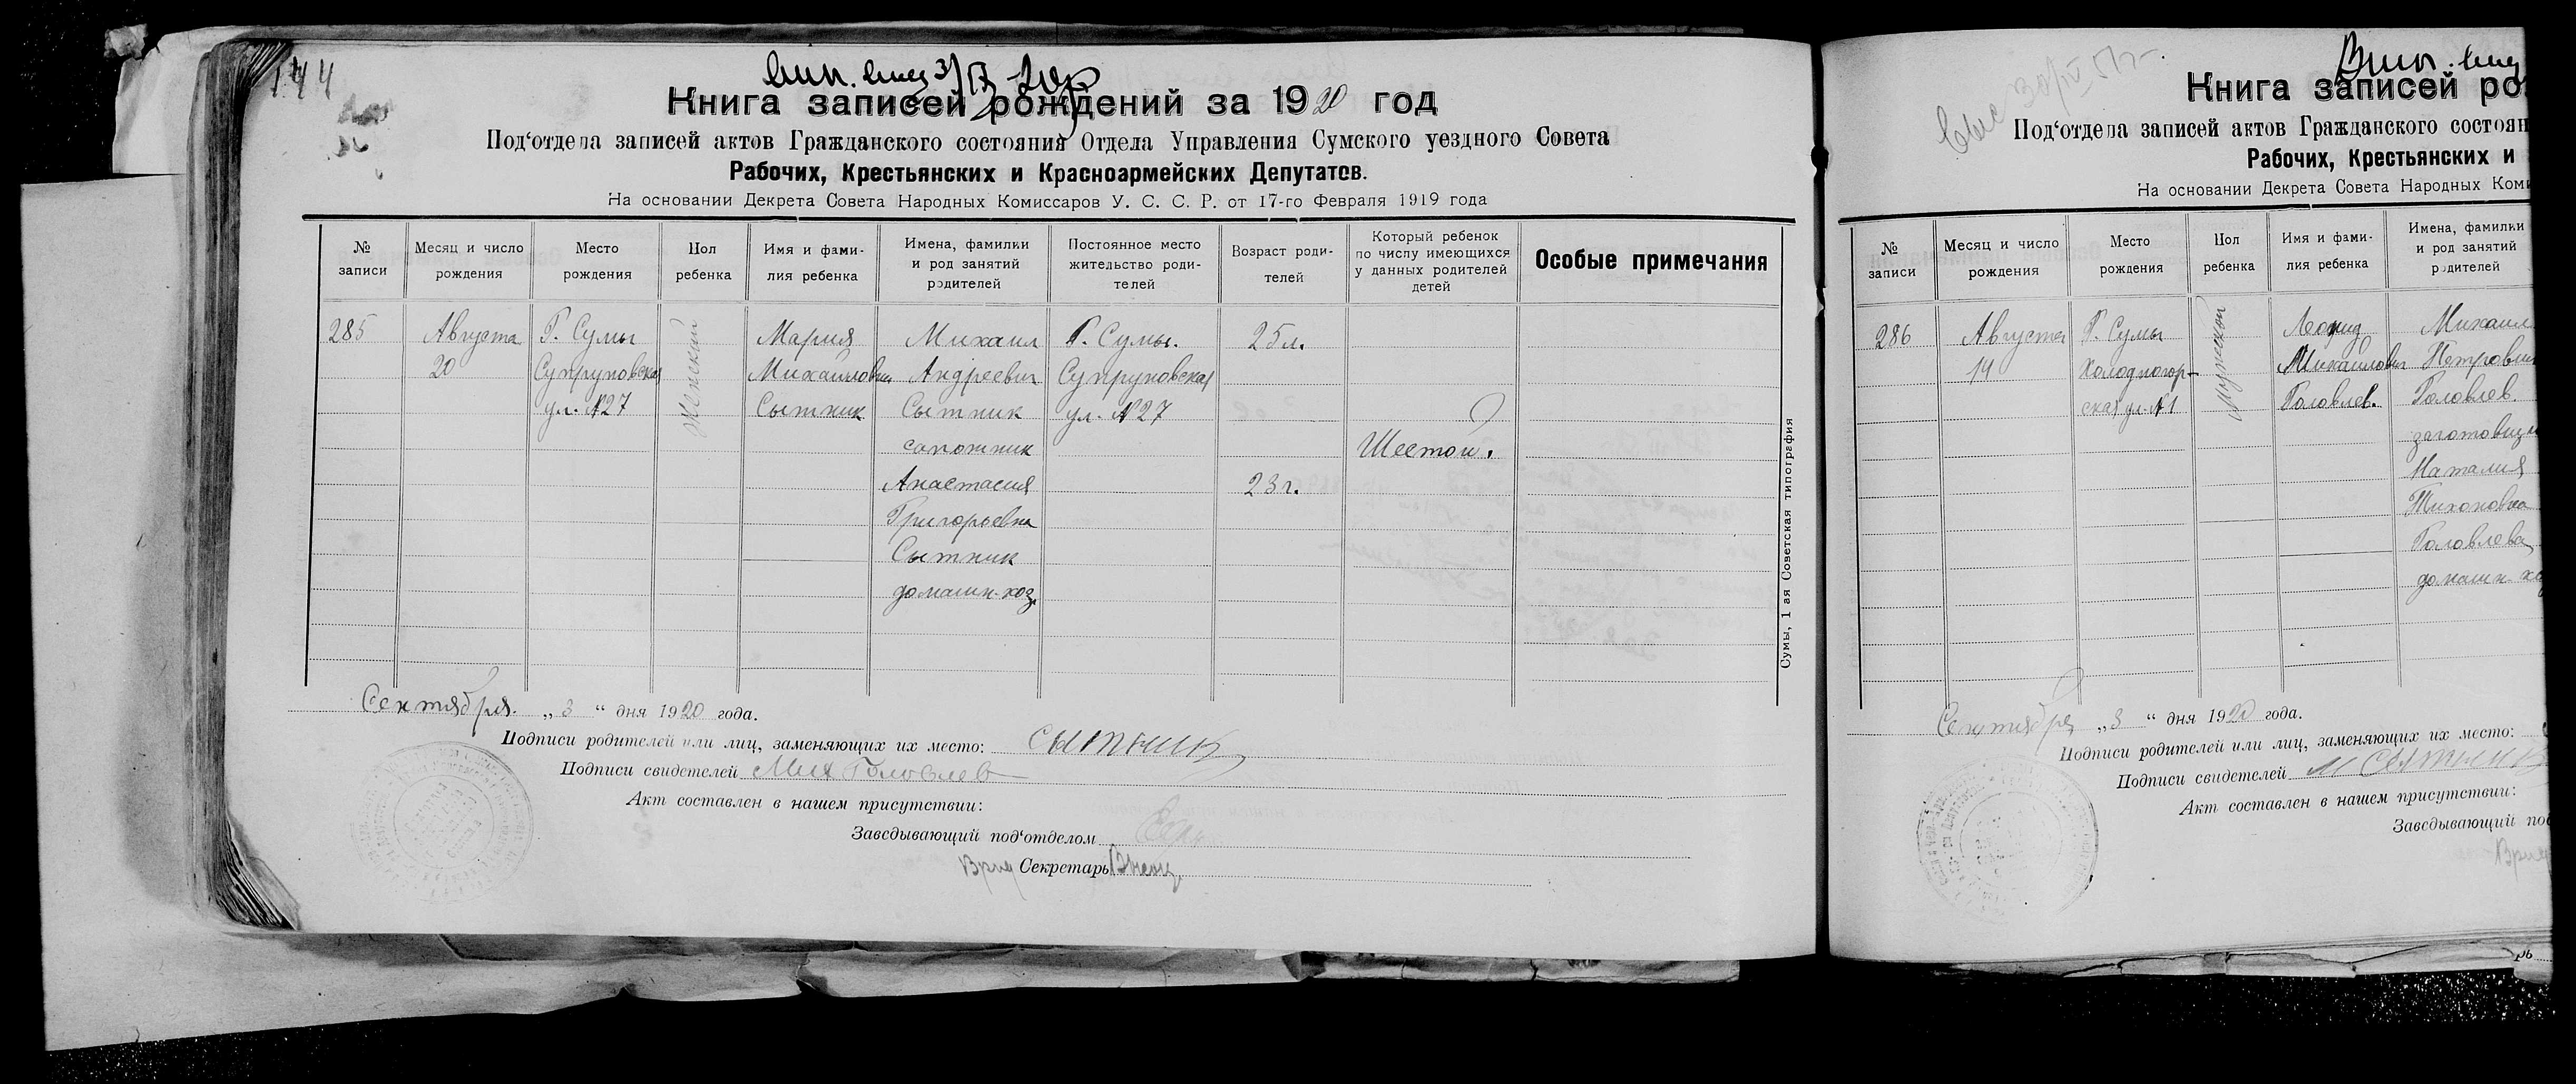 144
Книга записей рождений за 1920 год
Под‘отдела записей актов Гражданского состояния Отдела Управления Сумского уездного Совета
Рабочих, Крестьянских и Красноармейских Депутатов.
На основании Декрета Совета Народных Комиссаров У. С. С. Р. от 17-го Февраля 1919 года
№ записи
Месяц и число рождения
Место рождения
Пол ребенка
Имя и фами-
лия ребенка
Имена, фамилии
и род занятий
родителей
Постоянное место
жительство роди-
телей
Возраст роди-
телей
Который ребенок
по числу имеющихся
у данных родителей
детей
Особые примечания
285
Августа
20
Г. Сумы
Супруновская
ул. №27
Женский
Мария
Михайловна
Сытник
Михаил
Андреевич
Сытник
сапожник
Анастасия
Григорьевна
Сытник
домашн. хоз.
Г. Сумы.
Супруновская
ул. №27
25 л.
23 г.
Шестой.
Сентября „3“ дня 1920 года.
Подписи родителей или лиц, заменяющих их место: Сытник
Подписи свидетелей Мих Головлев
Акт составлен в нашем присутствии:
Заведывающий под‘отделом
Врид Секретарь
Сумы, 1 ая Советская типография
Книга записей ро
Под‘отдела записей актов Гражданского состоян
Рабочих, Крестьянских и
На основании Декрета Совета Народных Коми
№ записи
Месяц и число рождения
Место рождения
Пол ребенка
Имя и фами-
лия ребенка
Имена, фамилии
и род занятий
родителей
286
Августа
14
Г. Сумы
Холодногор-
ская ул. №1
Мужской
Леонид
Михайлович
Головлев.
Михаил
Петрович
Головлев
заготовщик
Наталия
Тихоновна
Головлева
домашн. хоз
Сентября „3“ дня 1920 года.
Подписи родителей или лиц, заменяющих их место:
Подписи свидетелей М Сытник
Акт составлен в нашем присутствии:
Заведывающий под
Врид